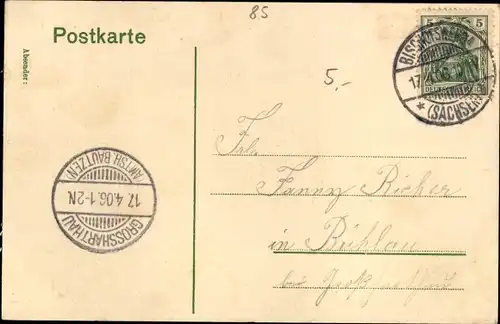 85
Postkarte
Absender:
5,-
5 5
BISCHOFSWERDA
17.4.06
* (SACHSEN)
Frl.
Fanny Richer
in Bühlau
bei Großharthau
GROSSHARTHAU
17.4.06.1-2N.
AMTSH. BAUTZEN